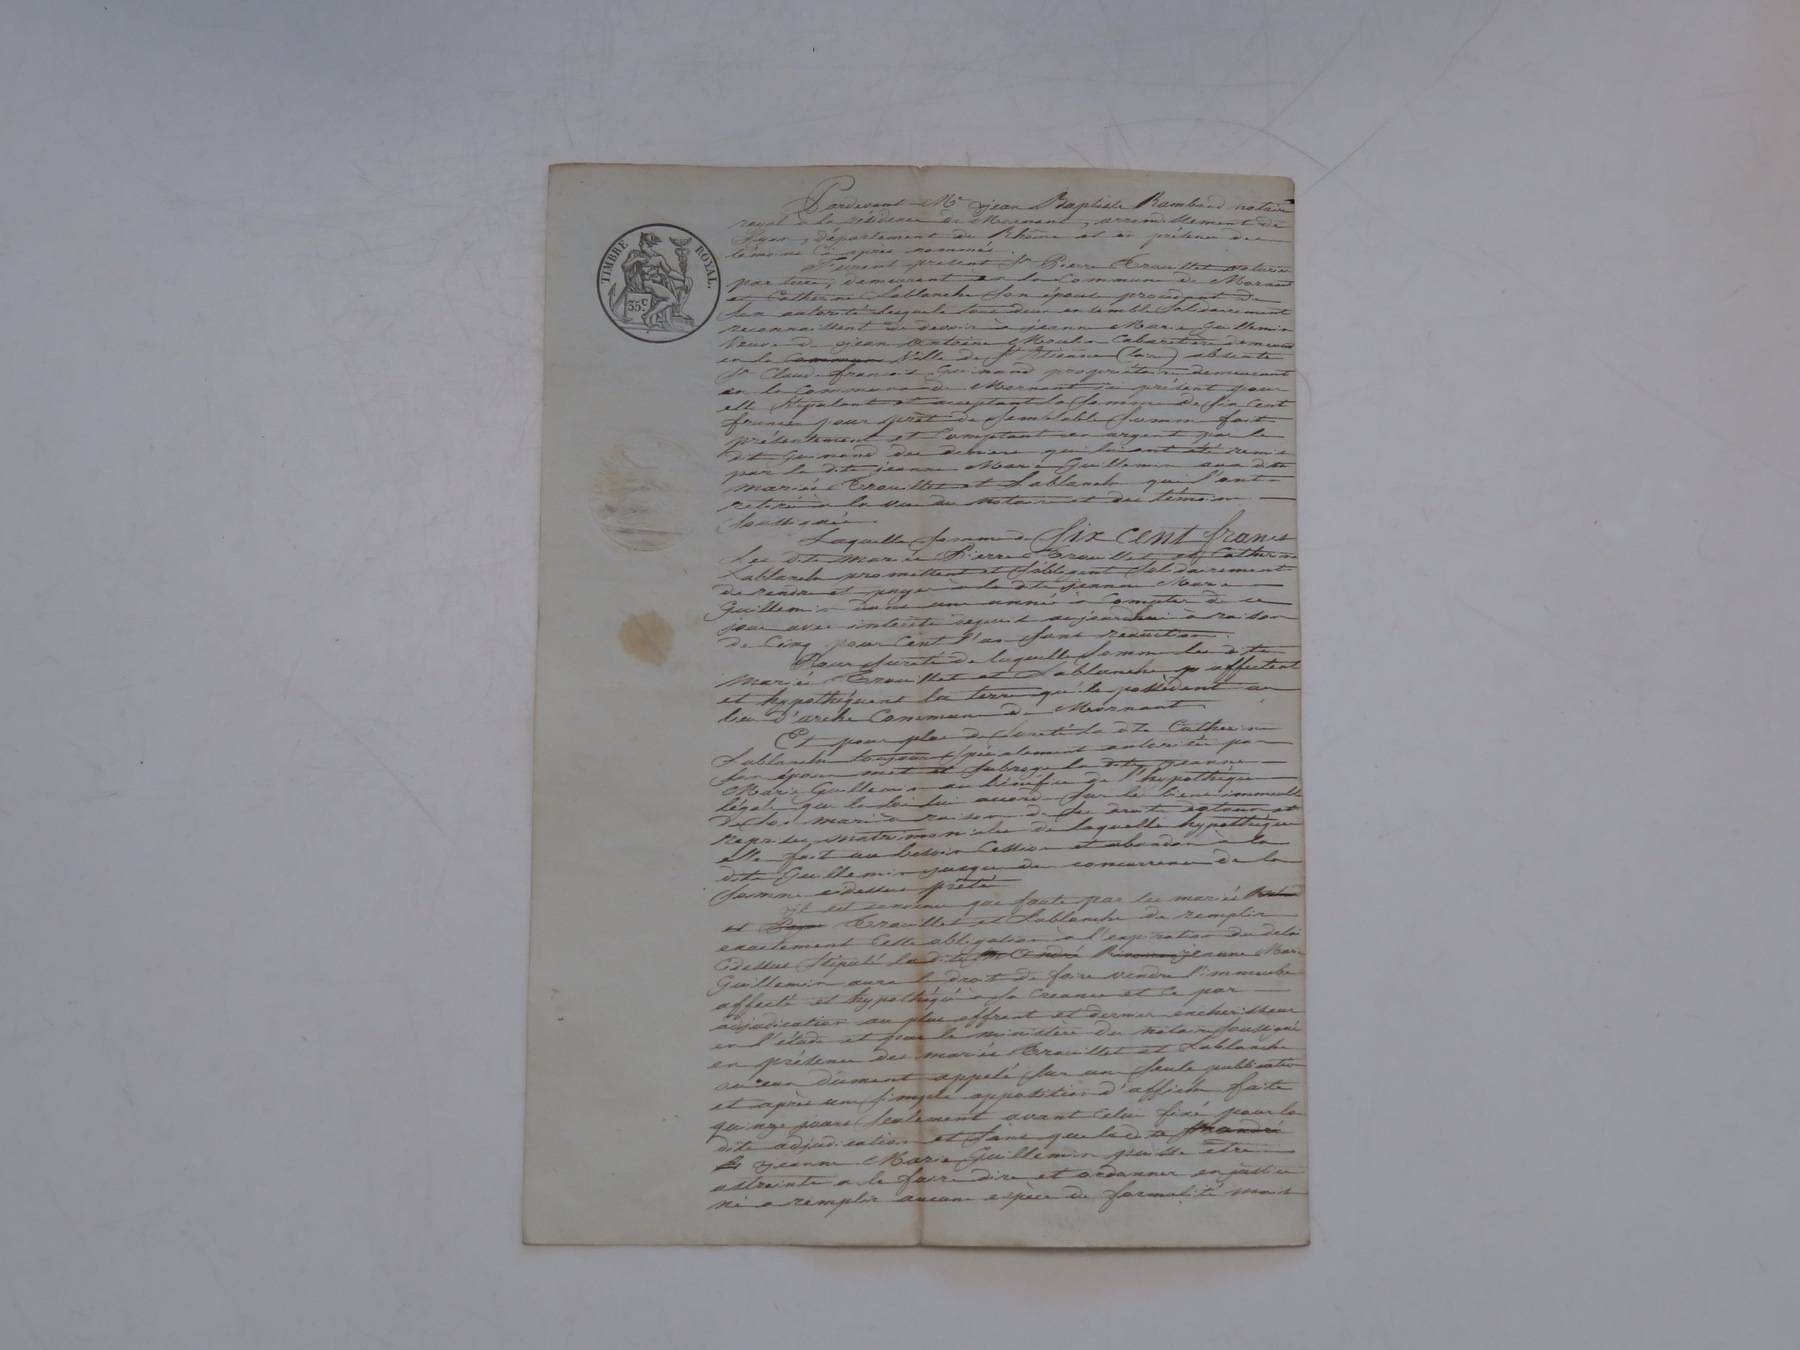 TIMBRE ROYAL.
35 c.
Pardevant Me jean Baptiste Rambaud notaire
royal à la résidence de Mornant, arrondissement de
Lyon, département du Rhône et en présence des
témoins ci après nommés.
Furent présent Sr Pierre Trouillet voiturier
par terre, demeurant en la Commune de Mornant
et Catherine Lablanche son épouse procédant de
son autorité lesquels tous deux ensemble solidairement
reconnaissent de devoir à jeanne Marie Guillemin
Veuve de jean Antoine Moulin Cabaretière demeurant
en la commune Ville de St Etienne (Loire) absente
Sr Claude françois Guinand propriétaire demeurant
en la Commune de Mornant ici présent pour
elle stipulant et acceptant la somme de Six Cent
francs pour prêt de semblable somme fait
présentement et Comptant en argent par le
dit Guinand des deniers qui lui ont été remis
par la dite jeanne Marie Guillemin aux dits
mariés Trouillet et Lablanche qui l'ont
retiré à la vue du notaire et des témoins
soussignés.
Laquelle somme de Six cent francs
les dits mariés Pierre Trouillet et Catherine
Lablanche promettent et s'obligent solidairement
de rendre et payer à la dite jeanne Marie
Guillemin dans une année à Compter de ce
jour avec intérêts depuis aujourdhui à raison
de Cinq pour Cent l'an sans réduction.
Pour sureté de laquelle somme les dits
mariés Trouillet et Lablanche affectent
et hypothéquent la terre qu'ils possèdent au
lieu d'arche Commune de Mornant.
Et pour plus de sureté la dite Catherine
Lablanche toujours spécialement autorisée par
son époux met et subroge la dite jeanne
Marie Guillemin au bénéfice de l'hypothèque
légale que la loi lui accorde sur les biens immeubles
de son mari à raison de ses droits dotaux et
reprises matrimoniales de laquelle hypothèque
elle fait au besoin Cession et abandon à la
dite Guillemin jusque du concurrence de la
somme cidessus prêté
il est convenu que faute par les mariés
et Trouillet et Lablanche de remplir
exactement Cette obligation à l'expiration du délai
Cidessus stipulé la dite André jeanne Marie
Guillemin aura le droit de faire vendre l'immeuble
affecté et hypothéqué à sa Creance et Ce par
adjudication au plus offrant et dernier encherisseur
en l'étude et par le ministère du notaire soussigné
en présence des mariés Trouillet et Lablanche
ou eux dûment appelé sur un seule publication
et après une simple apposition d'affiche faite
quinze jours seulement avant Celui fixé pour la
dite adjudication et sans que la dite
jeanne Marie Guillemin puisse être
astreinte a le faire dire et ordonner en justice
ni a remplir aucune espèce de formalité mais